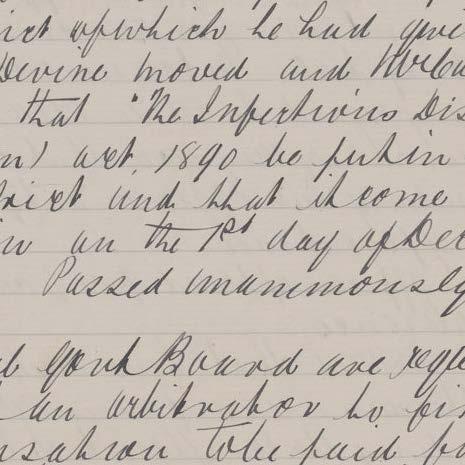 rict of which he had give
Devine moved and Mr Ca
that "The Infectious Dis
n) act, 1890 be put in
trict and that it come
in on the 1st day of Dec
Passed unanimously
al Govt Board are reqte
an arbitrator to fix
nsation to be paid fr